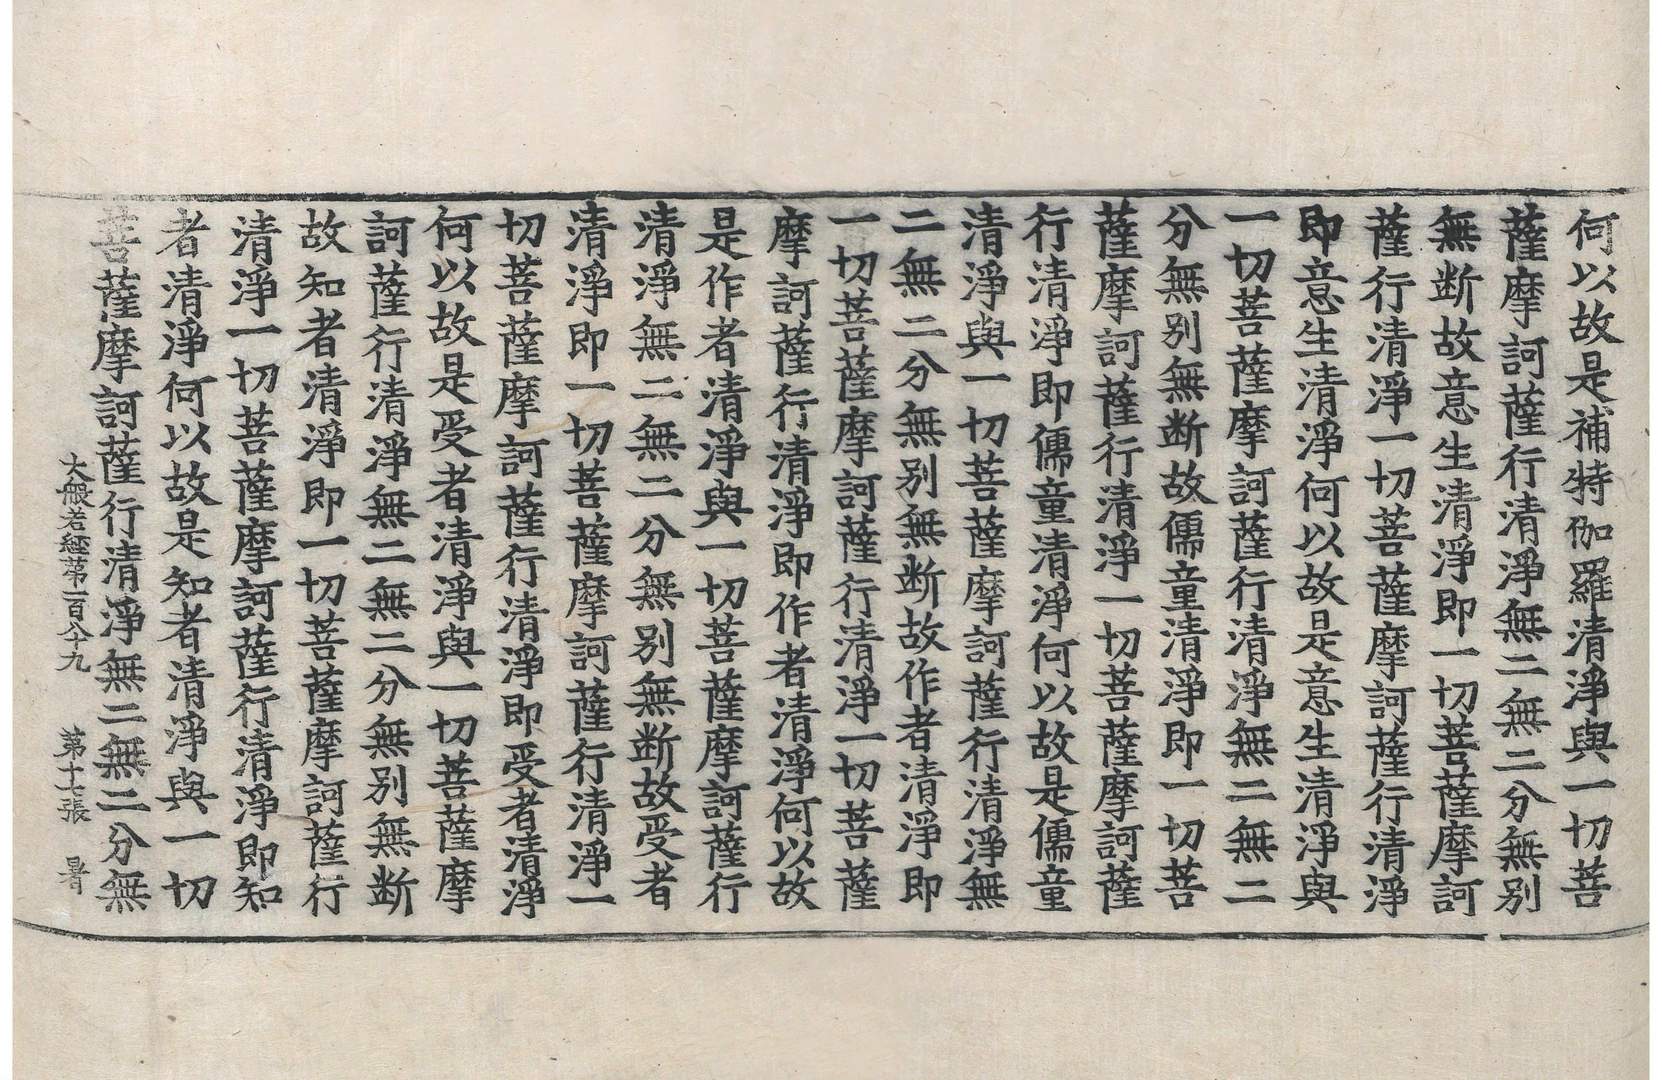 何以故是補特伽羅清淨與一切菩
薩摩訶薩行清淨無二無二分無别
無断故意生清淨即一切菩薩摩訶
薩行清淨一切菩薩摩訶薩行清淨
即意生清淨何以故是意生清淨與
一切菩薩摩訶薩行清淨無二無二
分無别無断故儒童清淨即一切菩
薩摩訶薩行清淨一切菩薩摩訶薩
行清淨即儒童清淨何以故是儒童
清淨與一切菩薩摩訶薩行清淨無
二無二分無别無断故作者清淨即
一切菩薩摩訶薩行清淨一切菩薩
摩訶薩行清淨即作者清淨何以故
是作者清淨與一切菩薩摩訶薩行
清淨無二無二分無别無断故受者
清淨即一切菩薩摩訶薩行清淨一
切菩薩摩訶薩行清淨即受者清淨
何以故是受者清淨與一切菩薩摩
訶薩行清淨無二無二分無别無断
故知者清淨即一切菩薩摩訶薩行
清淨一切菩薩摩訶薩行清淨即知
者清淨何以故是知者清淨與一切
菩薩摩訶薩行清淨無二無二分無
大般若經第一百八十九 第十七張 暑